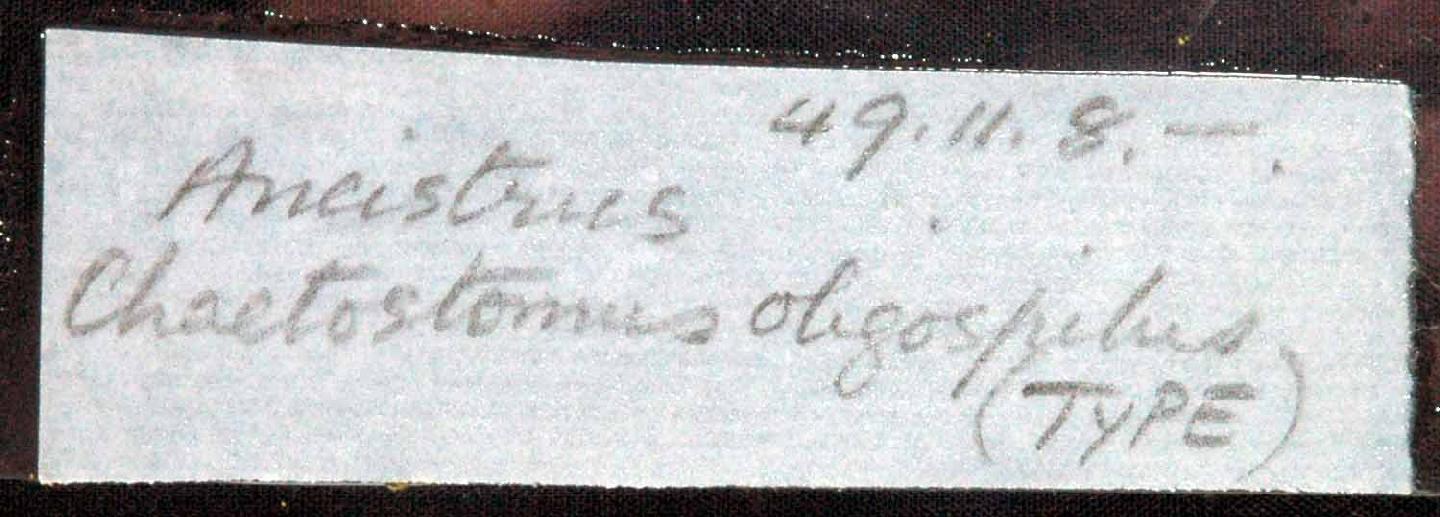 49.11.8.—.
Ancistrus
Chaetostomus oligospilus
(TYPE)